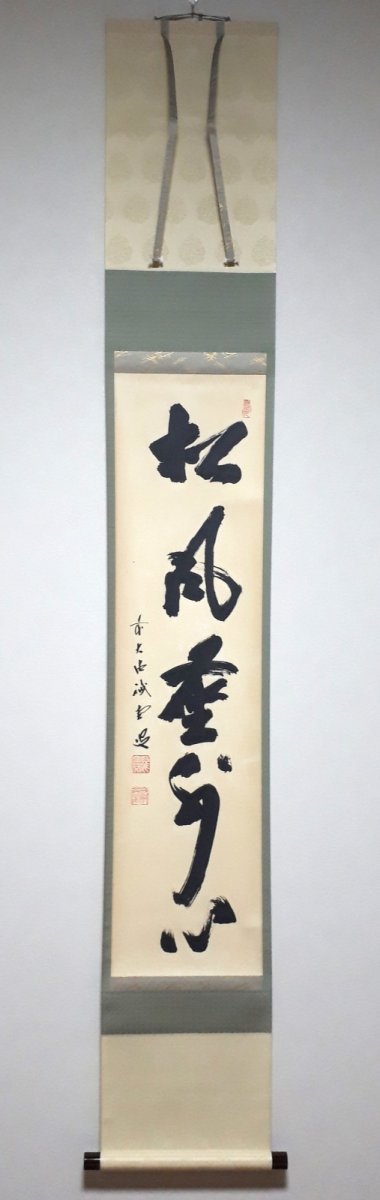 松風塵外心
前大徳誠堂